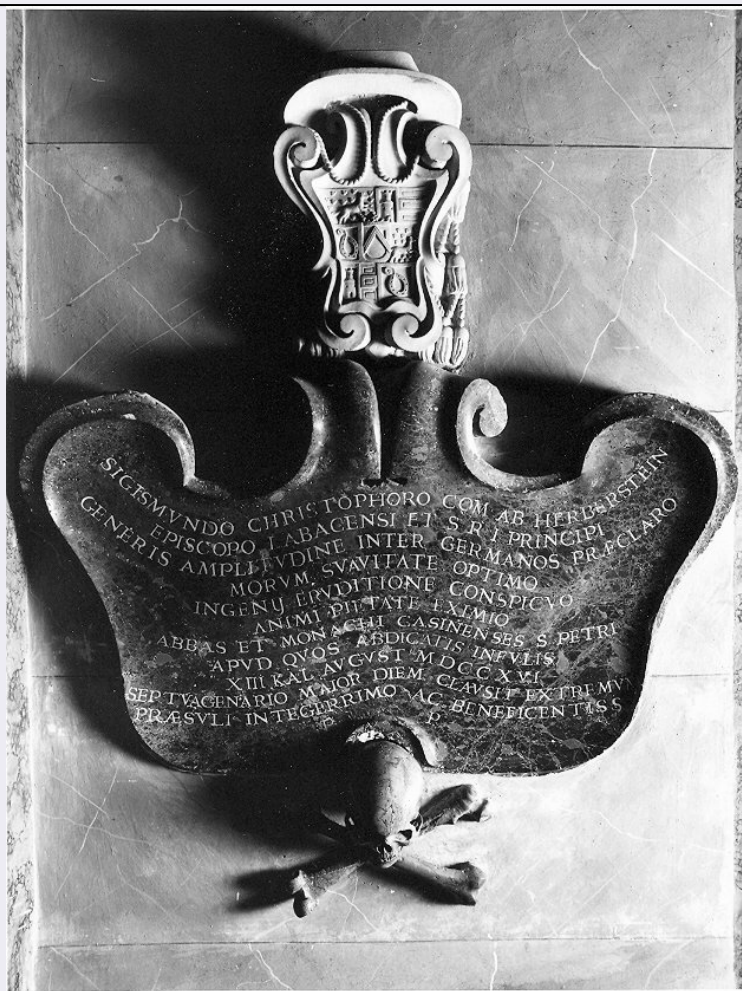 SIGISMVNDO CHRISTOPHORO COM AB HERBERSTEIN
EPISCOPO LABACENSI ET S R I PRINCIPI
GENERIS AMPLITVDINE INTER GERMANOS PRÆCLARO
MORVM SVAVITATE OPTIMO
INGENIJ ERVDITIONE CONSPICVO
ANIMI PIETATE EXIMIO
ABBAS ET MONACHI CASINENSES S. PETRI
APVD QVOS ABDICATIS INFVLIS
XIII KAL AVGVST MDCCXVI
SEPTVAGENARIO MAIOR DIEM CLAVSIT EXTREMVM
PRÆSVLI INTEGERRIMO AC BENEFICENTISS
P P